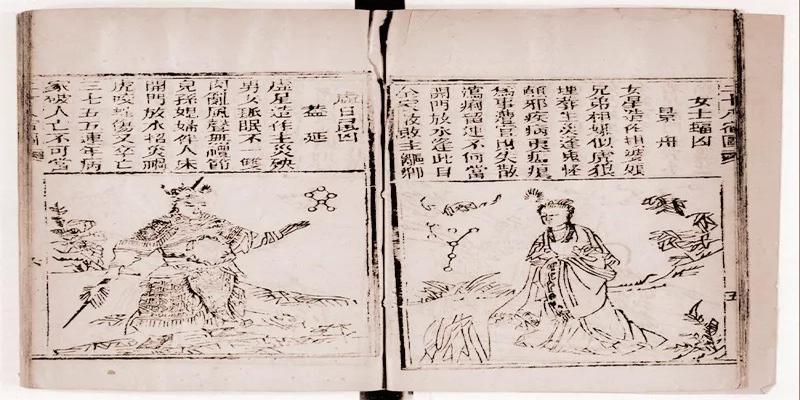 二十八宿圖
女土蝠凶
景丹
女星造作損婆娘
兄弟相嫌似虎狼
埋葬生災逢鬼怪
顛邪疾病更瘟
為事遭官財失散
瀉痢留連不何當
開門放水逢此日
全家散敗主離鄉
虛日鼠凶
蓋延
虛星造作主災殃
男女孤眠不一雙
內亂風聲無禮節
兒孫媳婦伴人床
開門放水招災禍
虎咬蛇傷又卒亡
三七五五連年病
家破人亡不可當